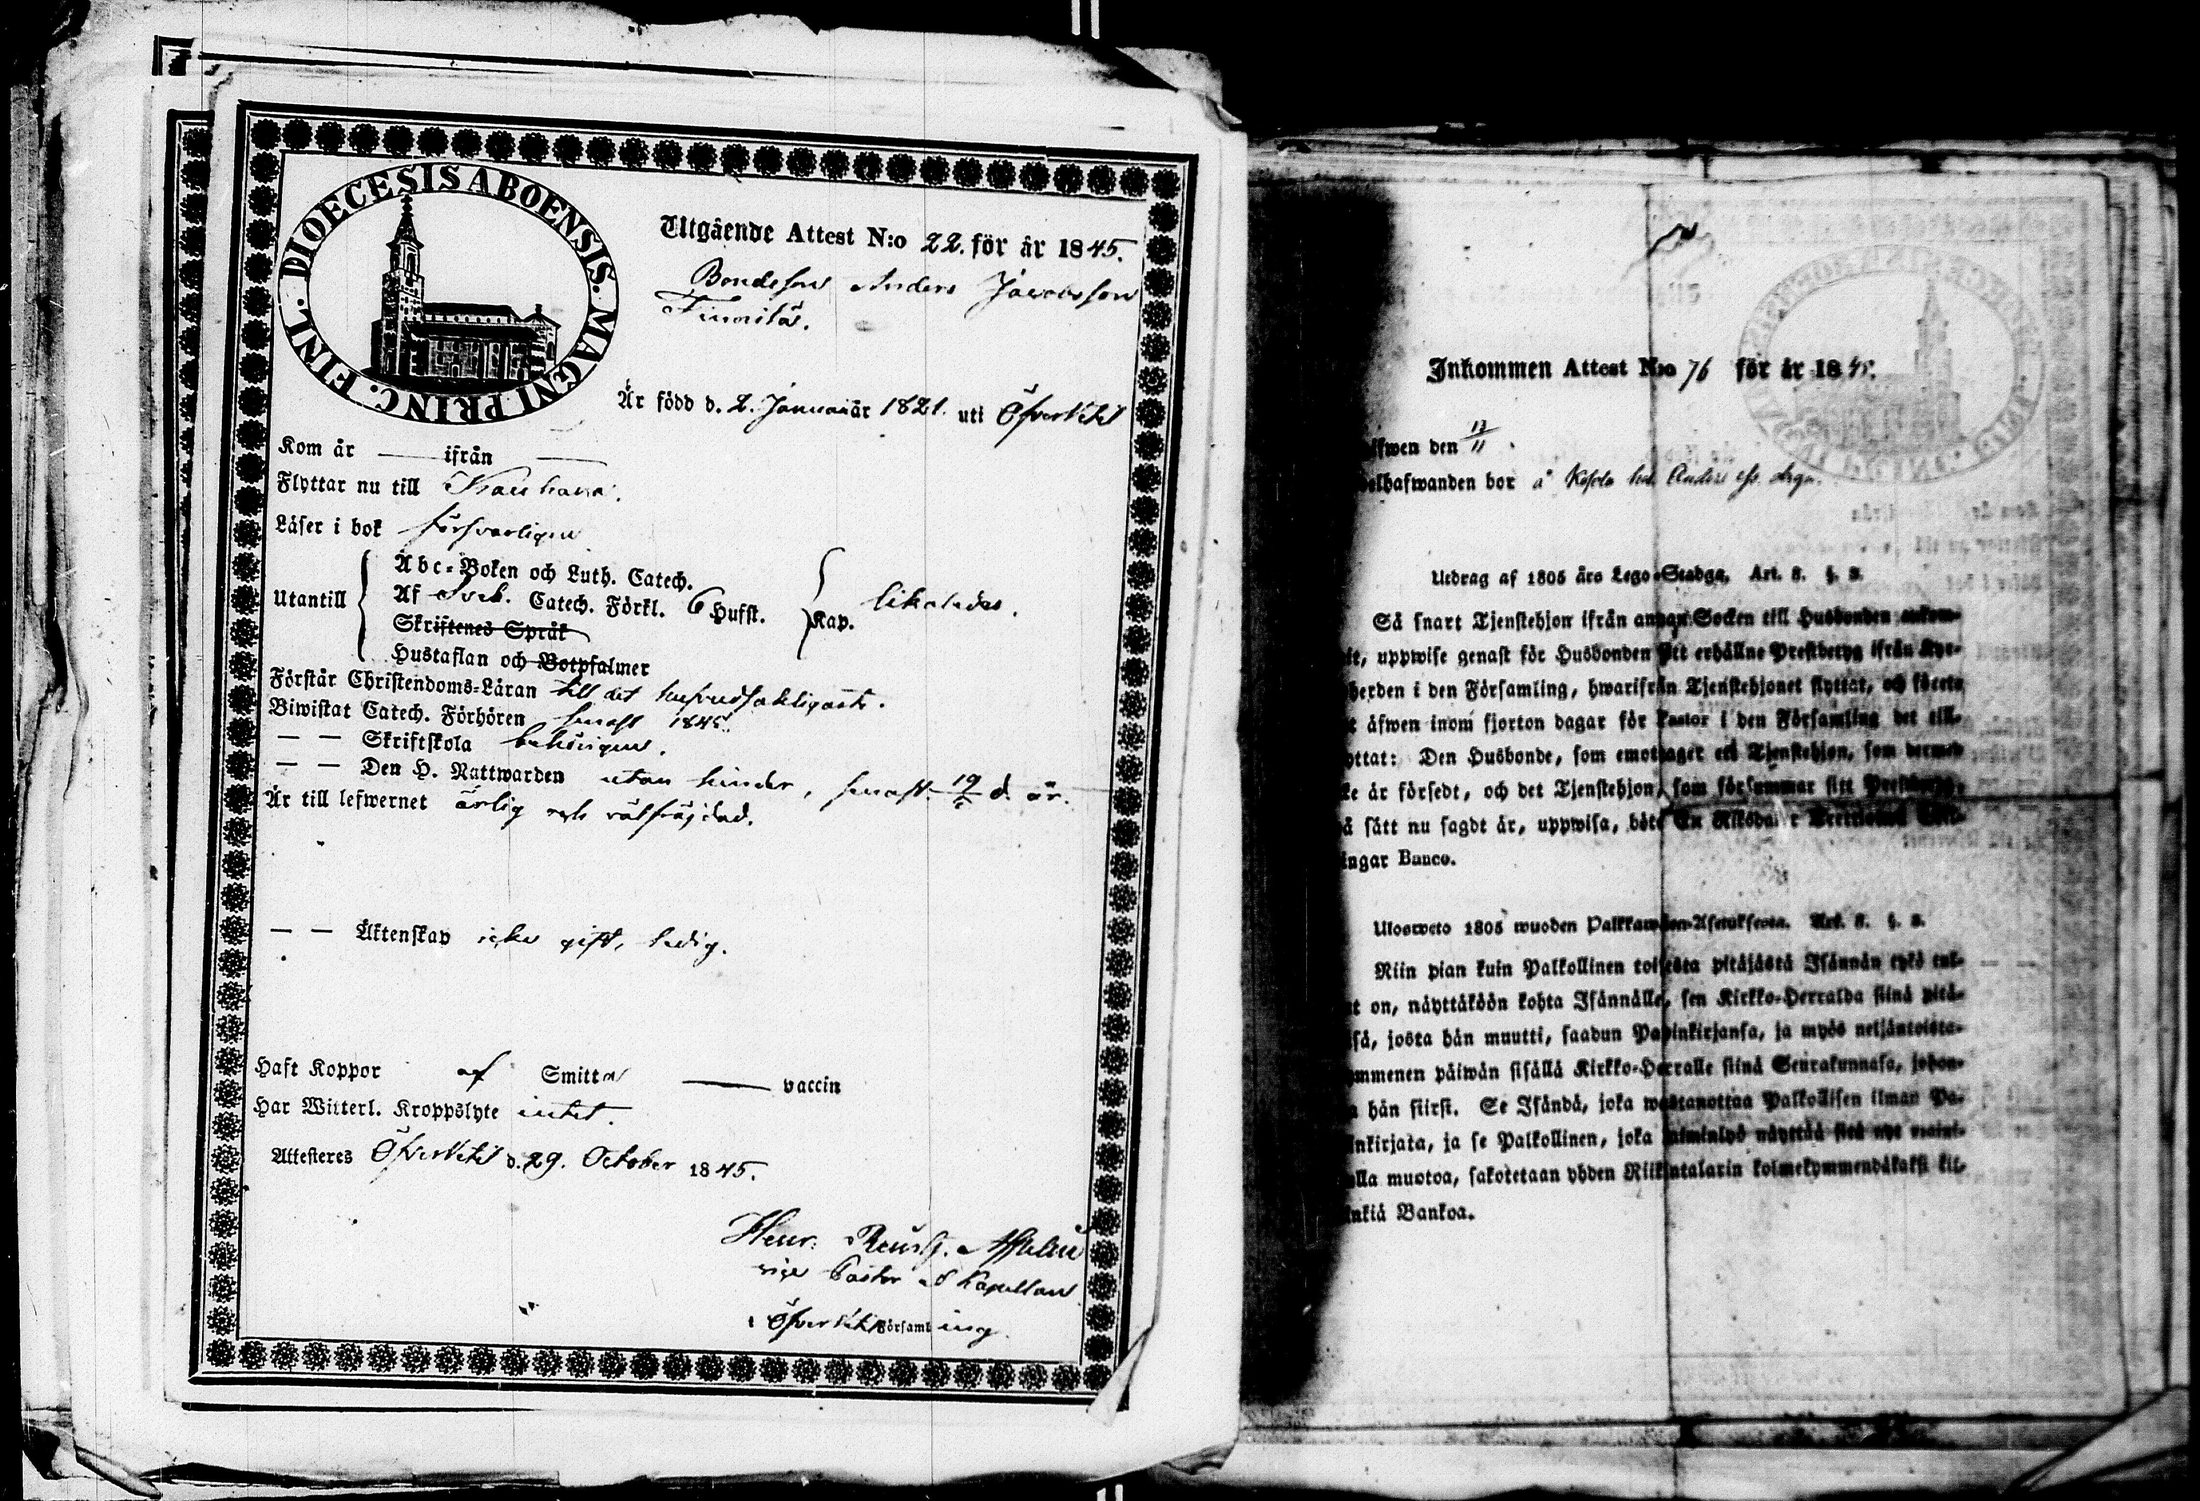 DIOECESIS ABOENSIS. MAGNI PRINC. FINL.
Utgående Attest N:o 22. för år 1845.
Bondeson Anders Jacobsson
Är född d. 2. Januari år 1821. uti Öfvervetil
Kom år — ifrån —
Flyttar nu till Kauhava.
Läser i bok försvarligen
Utantill
Abc-Boken och Luth. Catech.
Af Sveb. Catech. Förkl. 6 Hufst.
Skriftenes Språk
Hustaflan och Botpsalmer
Kap. likaledes.
Förstår Christendoms-Läran till det hufvudsakligaste.
Biwistat Catech. Förhören senast 1845.
— — Skriftskola behörigen.
— — Den H. Nattwarden utan hinder, senast 19 d. år.
Är till lefwernet ärlig och välfrägdad.
— — Äktenskap icke gift, ledig.
Haft Koppor af Smitta — vaccin
Har Witterl. Kroppslyte intet.
Attesteres Öfvervetil d. 29. October 1845.
Henr.
vice Pastor & Kapellan
i Öfvervetil Församling
Inkommen Attest N:o 76 för år 1845.
fwen den 13/11
elhafwanden bor å
Utdrag af 1805 års Lego-Stadga, Art. 8. §. 2.
Så snart Tjenstehjon ifrån annan Socken till Husbonden ankom-
it, uppwise genast för Husbonden sitt erhållne Prestbetyg ifrån Kyr-
herden i den Församling, hwarifrån Tjenstehjonet flyttat, och förete
t äfwen inom fjorton dagar för Pastor i den Församling det till-
yttat: Den Husbonde, som emottager ett Tjenstehjon, som dermed
ke är försedt, och det Tjenstehjon, som försummar sitt Prestbetyg,
å sätt nu sagdt är, uppwisa, böte En Riksdaler Trettiotwå Skil-
ingar Banco.
Ulosweto 1805 wuoden Palkkawäen-Asetuksesta. Art. 8. §. 2.
Niin pian kuin Palkollinen toisesta pitäjästä Isännän tykö tul-
ut on, näyttäköön kohta Isännälle, sen Kirkko-Herralda siinä pitä-
sä, josta hän muutti, saadun Papinkirjansa, ja myös neljäntoista-
ymmenen päiwän sisällä Kirkko-Herralle siinä Seurakunnasa, johon-
a hän siirsi. Se Isändä, joka wastanottaa Palkollisen ilman Pa-
inkirjata, ja se Palkollinen, joka laiminlyö näyttää sitä nyt maini-
ulla muotoa, sakotetaan yhden Riikintalarin kolmekymmendäkaksi kil-
inkiä Bankoa.